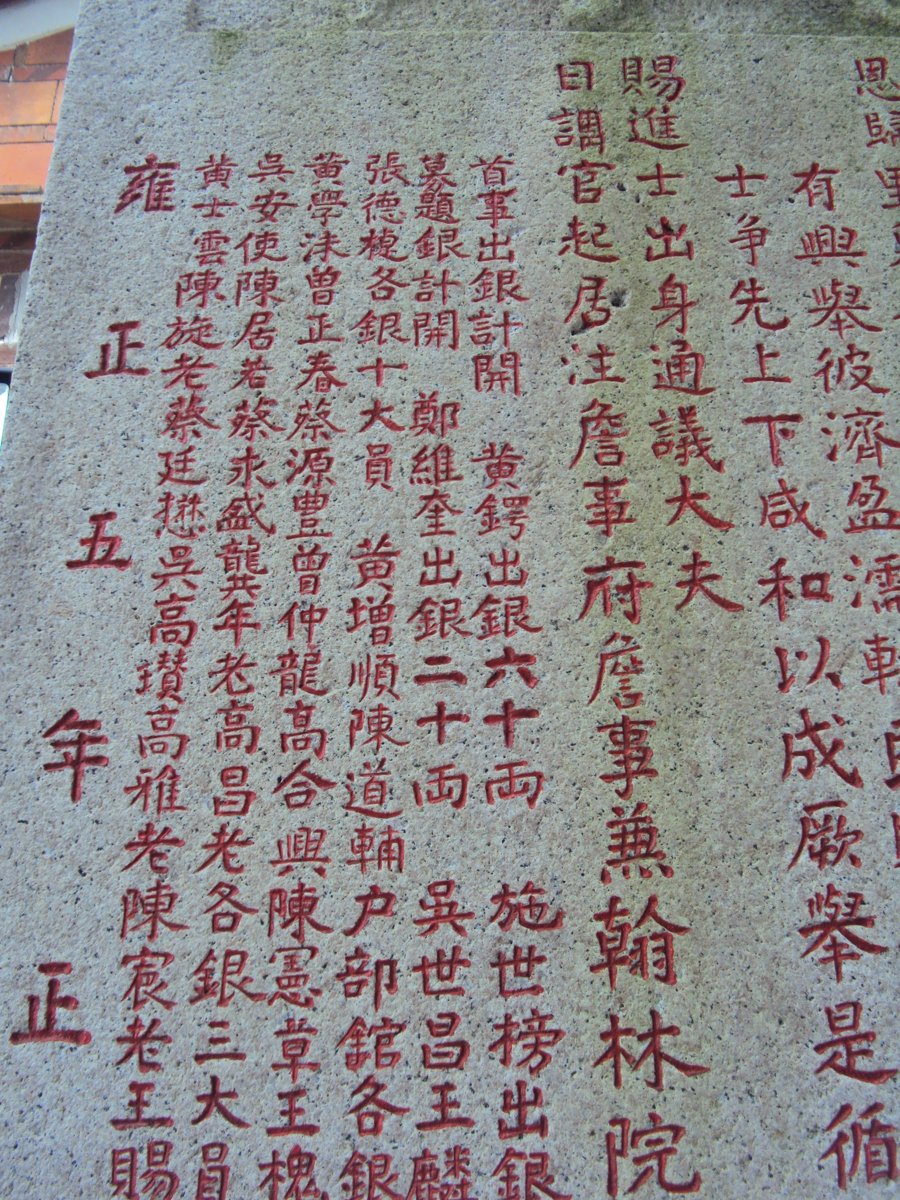 恩歸里
有興舉彼濟盈濡軌
士爭先上下咸和以成厥舉是循
賜進士出身通議大夫
日講官起居注詹事府詹事兼翰林院
首事出銀計開 黄鍔出銀六十両 施世榜出銀
募題銀計開 鄭維奎出銀二十両 吳世昌王麟
張德槐各銀十大員 黄增順陳道輔户部館各銀
黄學洙曾正春蔡源豊曾仲龍高合興陳憲章王槐
吳安使陳居若蔡永盛龔年老高昌老各銀三大員
黄士雲陳旋老蔡廷懋吳高瓚高雅老陳宸老王賜
雍正五年正